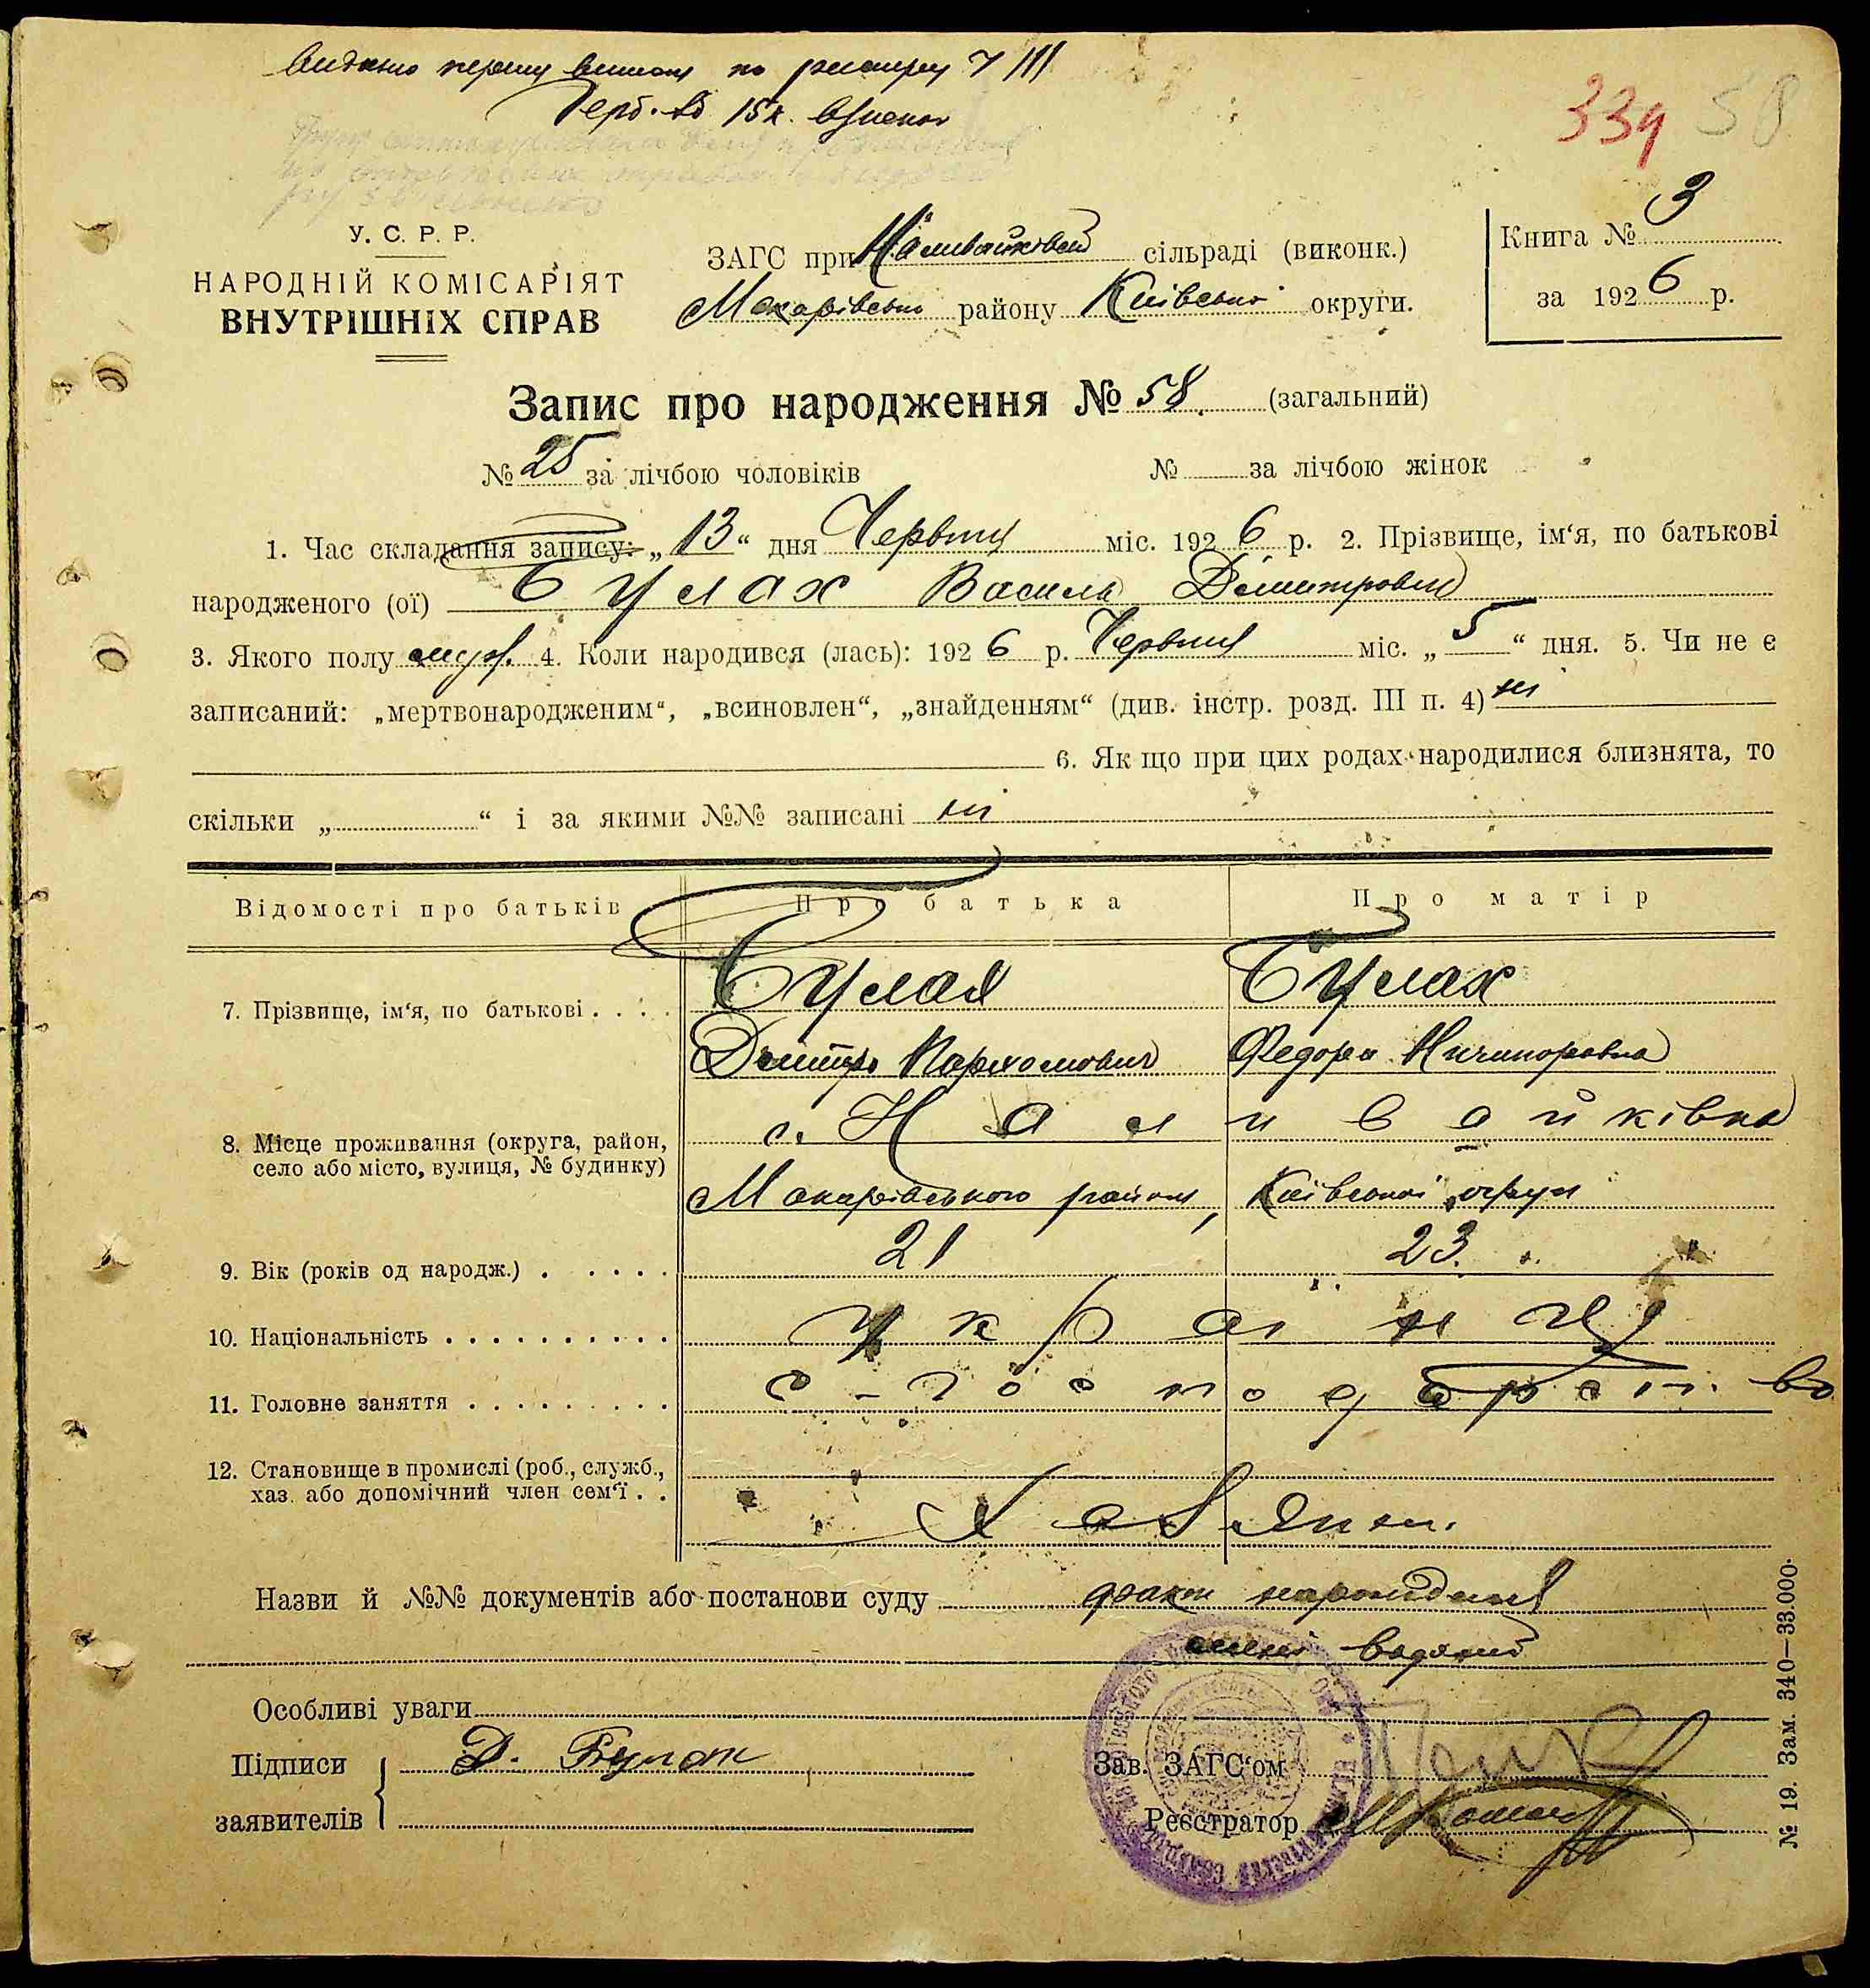 Видано першу виписъ по реєстру 7/III
Герб. зб 15 к.
339 58
У. С. Р. Р.
НАРОДНІЙ КОМІСАРІЯТ
ВНУТРІШНІХ СПРАВ
ЗАГС при Наливайковской сільраді (виконк.)
Макарівськ району Київської округи.
Книга № 3
за 1926 р.
Запис про народження № 58. (загальний)
№ 25 за лічбою чоловіків № за лічбою жінок
1. Час складання запису: „13“ дня Червня міс. 1926 р. 2. Прізвище, ім‘я, по батькові
народженого (ої) Булах Василь Дмитрович
3. Якого полу муж. 4. Коли народився (лась): 1926 р. Червня міс. „5“ дня. 5. Чи не є
записаний: „мертвонародженим“, „всиновлен“, „знайденням“ (див. інстр. розд. III п. 4) ні
6. Як що при цих родах народилися близнята, то
скільки „ “ і за якими №№ записані ні
Відомості про батьків Про батька Про матір
7. Прізвище, ім‘я, по батькові . . . . Булах Булах
Дмитро Пархомович Федора Ничипоровна
8. Місце проживання (округа, район,
село або місто, вулиця, № будинку)
с. Наливайківка
Макарівського району, Київської округи
9. Вік (років од народж.) . . . . . 21 23.
10. Національність . . . . . . . . . . україн ці
11. Головне заняття . . . . . . . . . с-господарство
12. Становище в промислі (роб., служб.,
хаз. або допомічний член сем‘ї . .
Хазяин.
Назви й №№ документів або постанови суду факт народження
мені
Особливі уваги
Підписи
заявителів
Д. Булах
Зав. ЗАГС‘ом
Реєстратор
№ 19. Зам. 340—33.000.